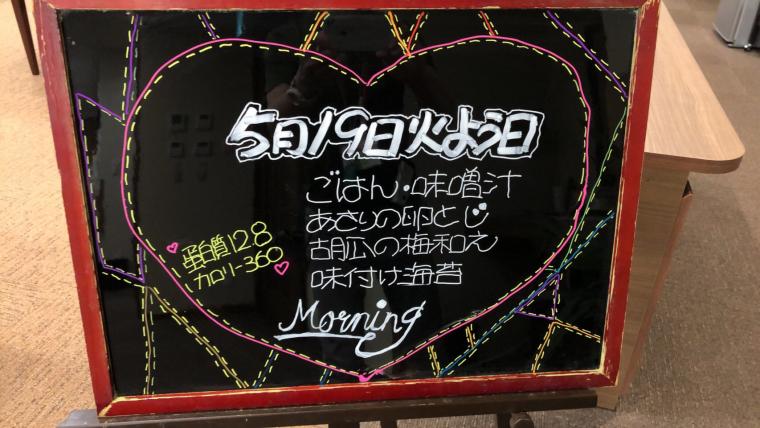 5月19日火よう日
ごはん・味噌汁
あさりの卵とじ
胡瓜の梅和え
味付け海苔
蛋白質12.8
カロリー360
Morning